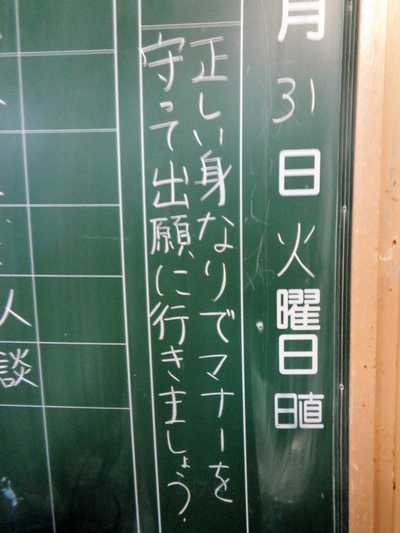 月31日火曜日直
正しい身なりでマナーを
守って出願に行きましょう.
人
談